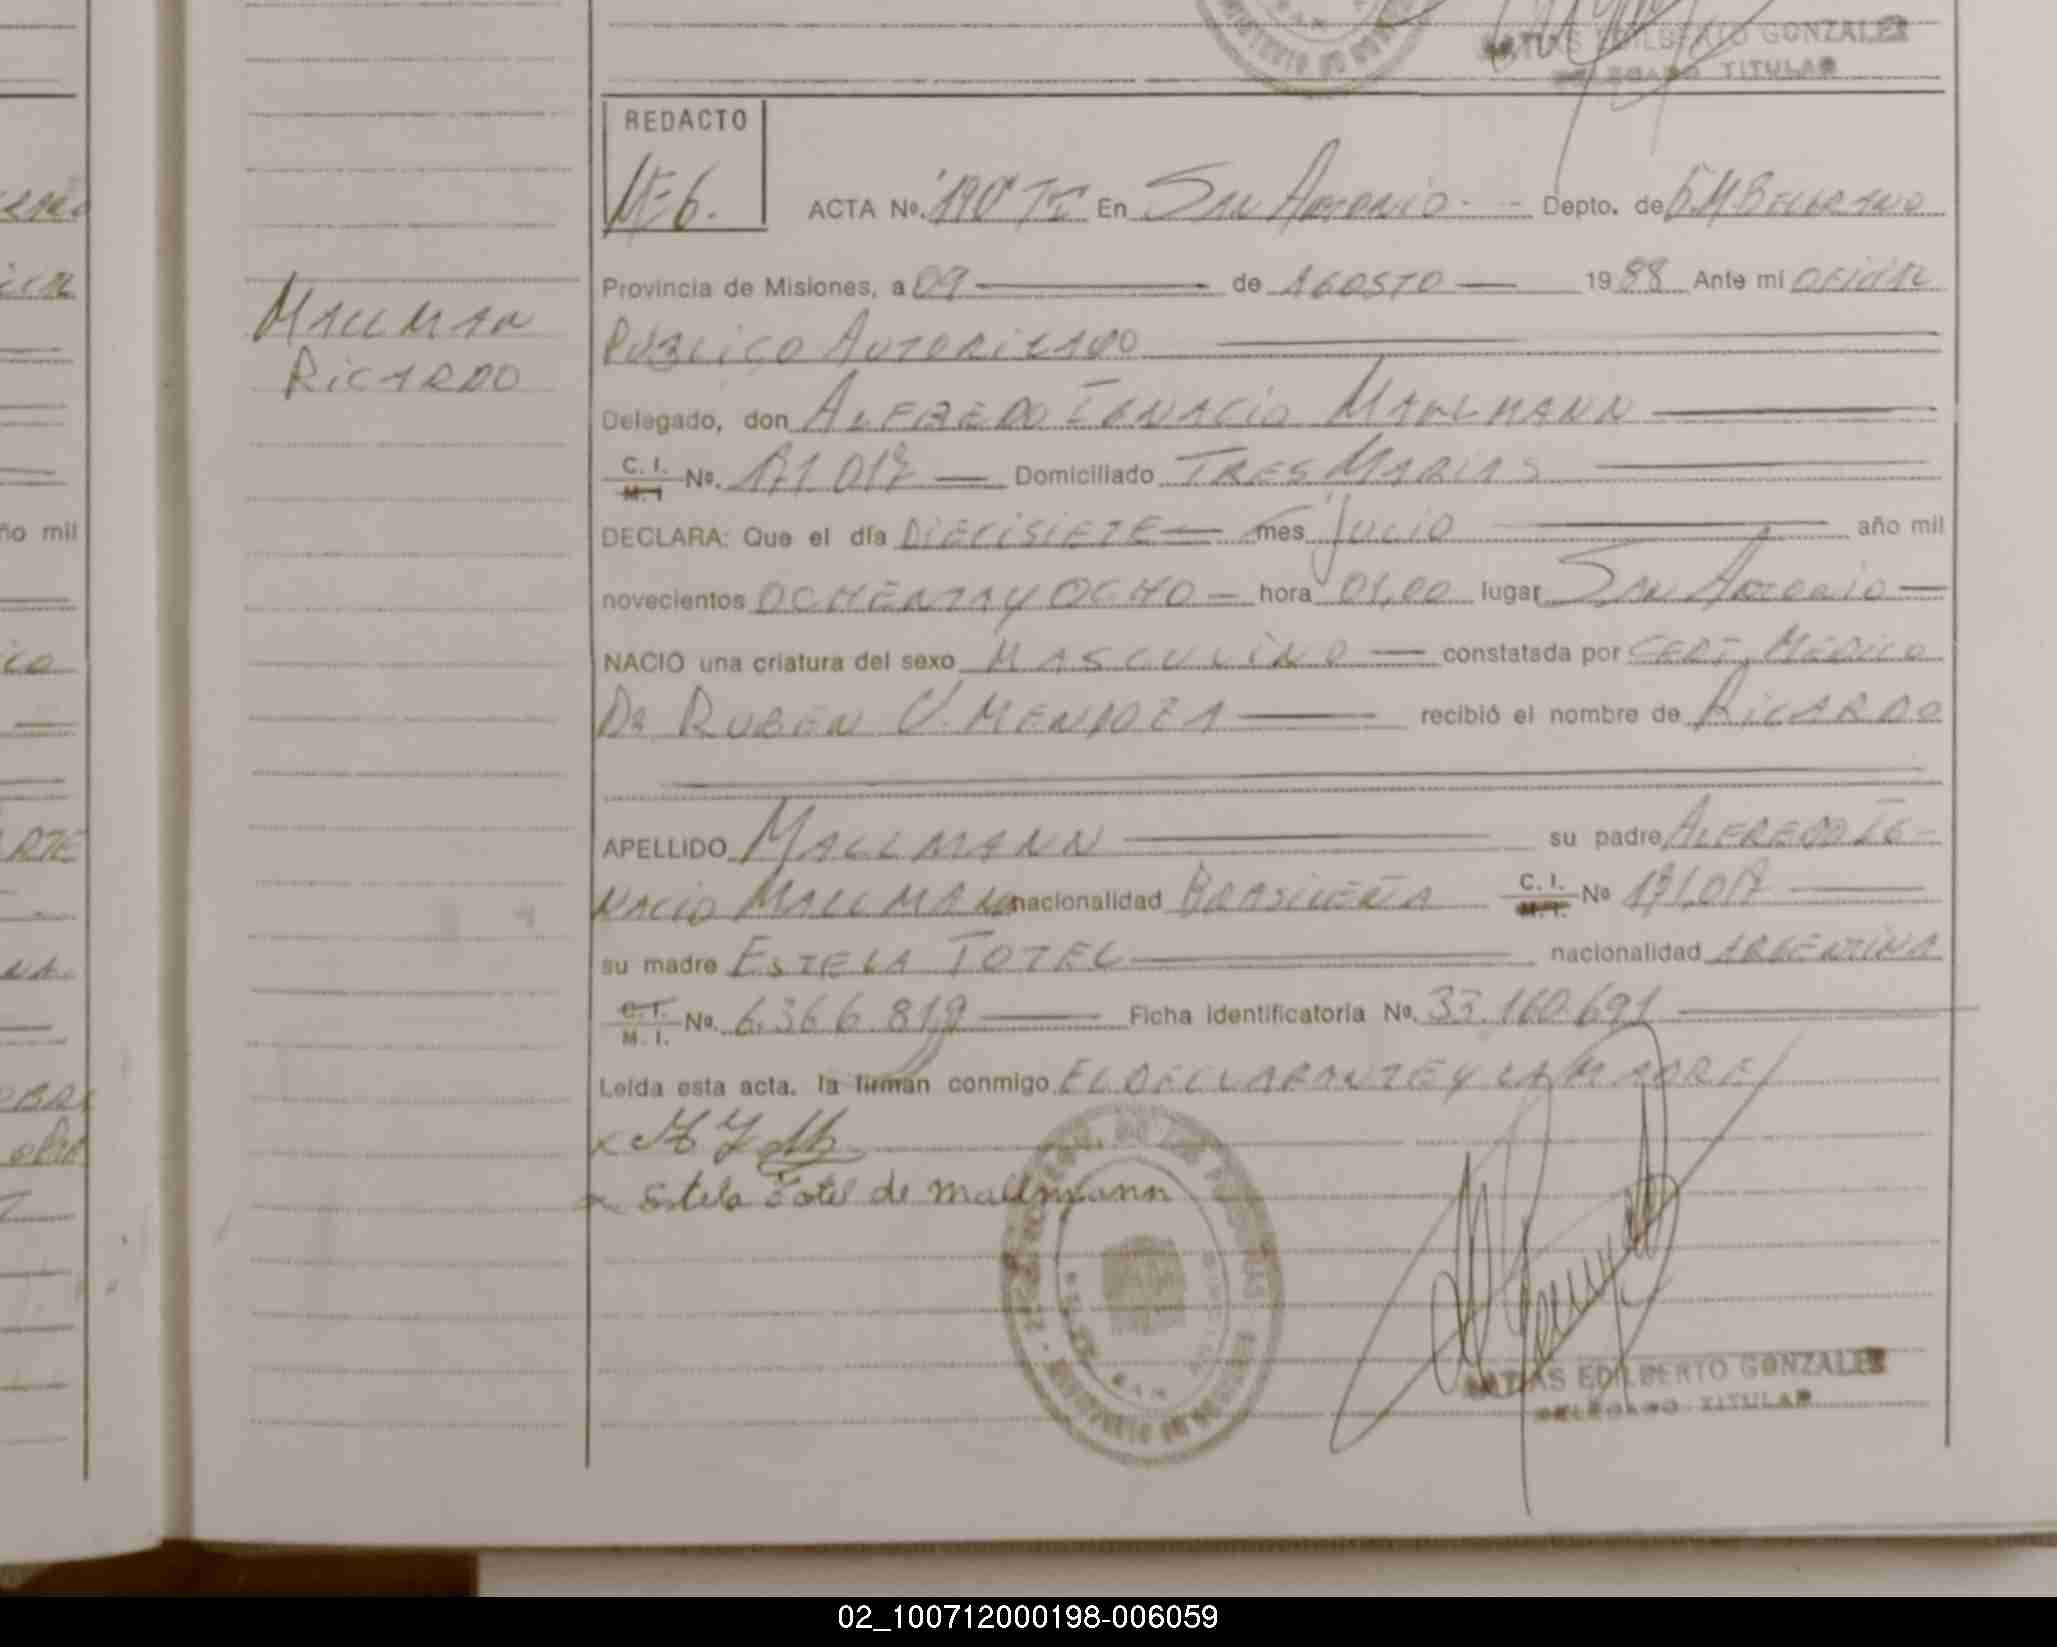 MATIAS EDILBERTO GONZALEZ
DELEGADO TITULAR
REDACTO
ACTA No. 190 TI En SAN ANTONIO - - Depto. de G.M BELGRANO
Provincia de Misiones, a 09 de AGOSTO 1988 Ante mi OFICIAL
PUBLICO AUTORIZADO
MALLMAN
RICARDO
Delegado, don ALFREDO IGNACIO MALLMANN
C. I. M. I No. 171.017 Domiciliado TRES MARIAS
DECLARA: Que el día DIECISIETE mes Julio año mil
novecientos OCHENTA Y OCHO hora 01,00 lugar SAN ANTONIO
NACIO una criatura del sexo MASCULINO constatada por CERT. MEDICO
DR RUBEN V. MENDOZA recibió el nombre de RICARDO
APELLIDO MALLMANN su padre ALFREDO IG-
NACIO MALLMANN nacionalidad BRASILEÑA C. I. M. I. No 171.017
su madre ESTELA TOTEL nacionalidad ARGENTINA
C. I. M. I. No. 6.366.819 Ficha identificatoria No. 33.160.691
Leída esta acta, la firman conmigo EL DECLARANTE Y LA MADRE
x
x Estela Totel de mallmann
MATIAS EDILBERTO GONZALEZ
DELEGADO TITULAR
02_100712000198-006059